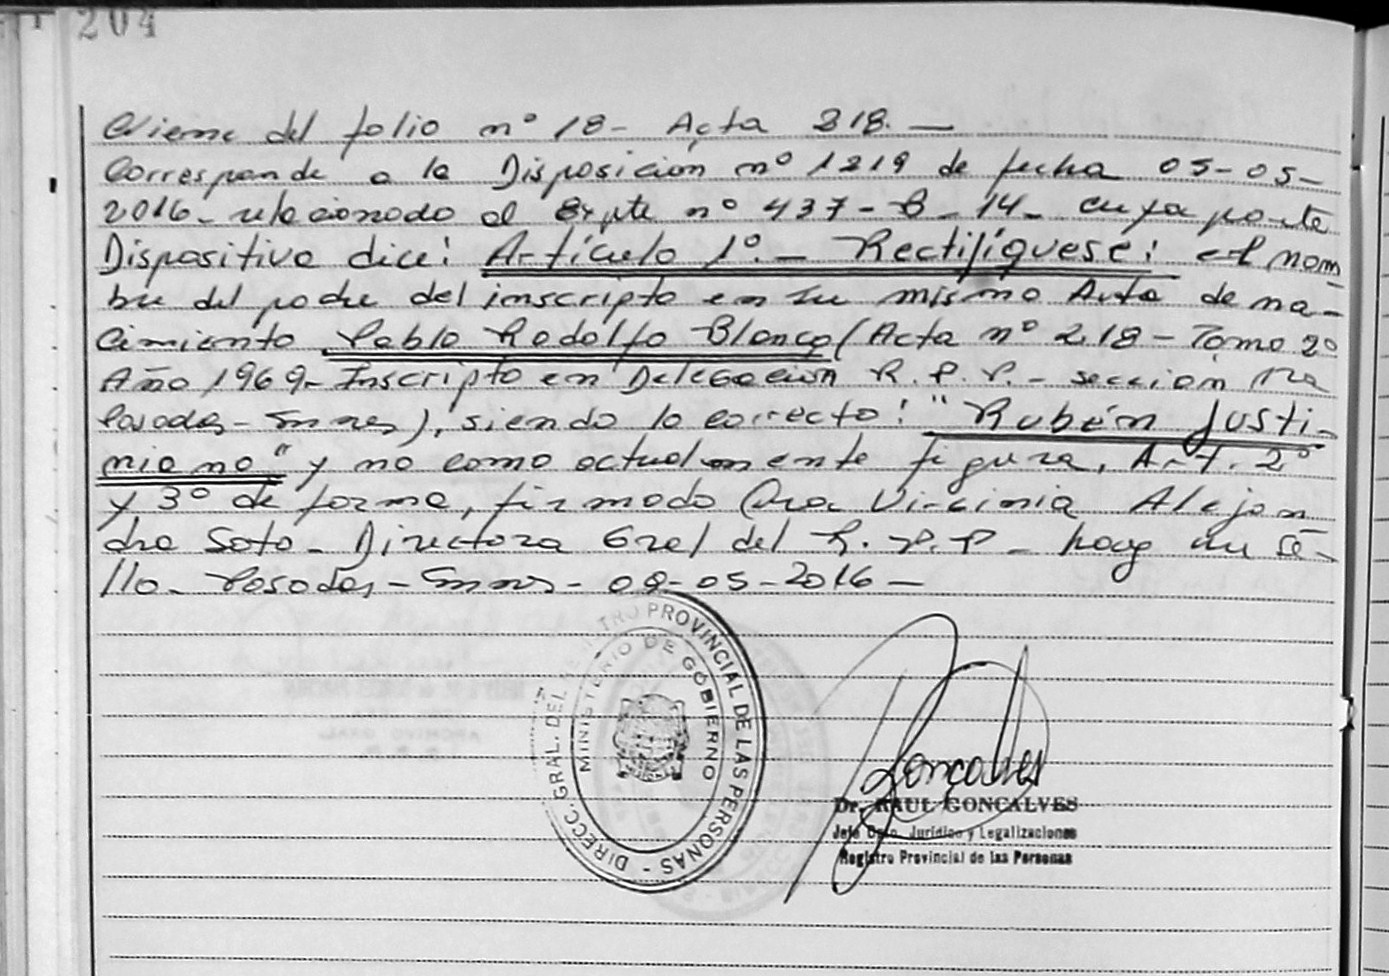 204
Viene del folio nº 18 - Acta 218. —
Corresponde a la Disposicion nº 1219 de fecha 05-05-
2016 - relacionado al Expte nº 437 - B - 14 - cuya parte
Dispositiva dice: Artículo 1º. - Rectifíquese: el nom
bre del padre del inscripto en su mismo Acta de na-
cimiento Pablo Rodolfo Blanco (Acta nº 218 - Tomo 2º
Año 1969 - Inscripto en Delegacion R. P. P. - seccion 1ra
Posadas - Mnes), siendo lo correcto: "Rubén Justi-
niano" y no como actualmente figura. Art. 2º
y 3º de forma, firmado Dra Virginia Alejan
dra Soto - Directora Gral del R. P. P - hay un se-
llo - Posadas - Mnes - 09-05-2016 —
DIRECC. GRAL. DEL REGISTRO PROVINCIAL DE LAS PERSONAS -
MINISTERIO DE GOBIERNO
Goncalves
Dr. RAUL GONCALVES
Jefe Dpto. Jurídico y Legalizaciones
Registro Provincial de las Personas